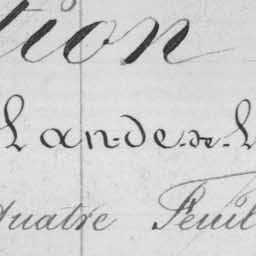 tion
Lan-de-de-L
Quatre Feuil